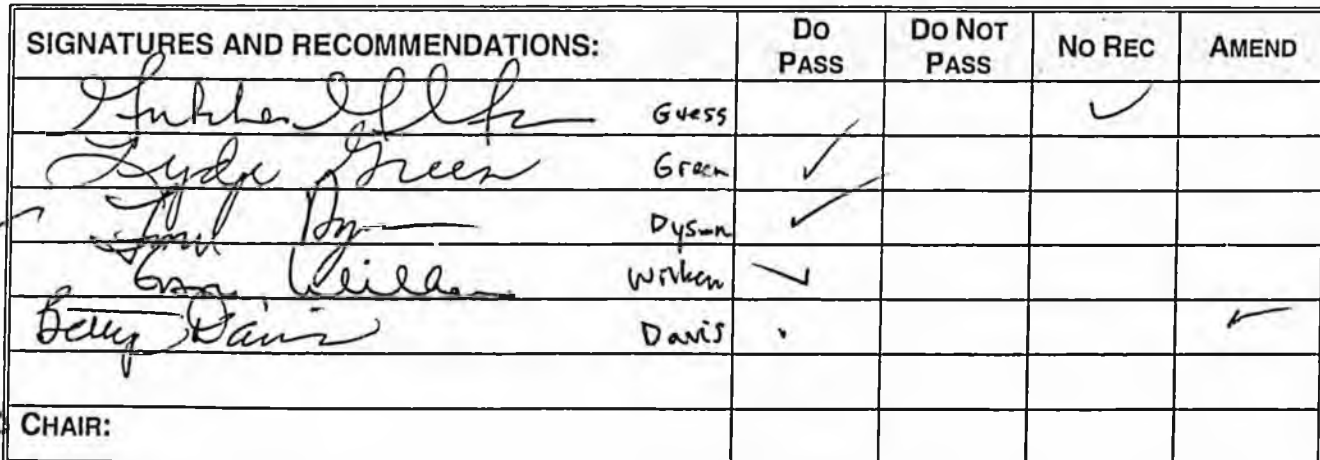 SIGNATURES AND RECOMMENDATIONS: DO PASS DO NOT PASS NO REC AMEND
Guess ✓
Lyda Green Green ✓
Dyson ✓
Wilken ✓
Betty Davis Davis ✓
CHAIR: